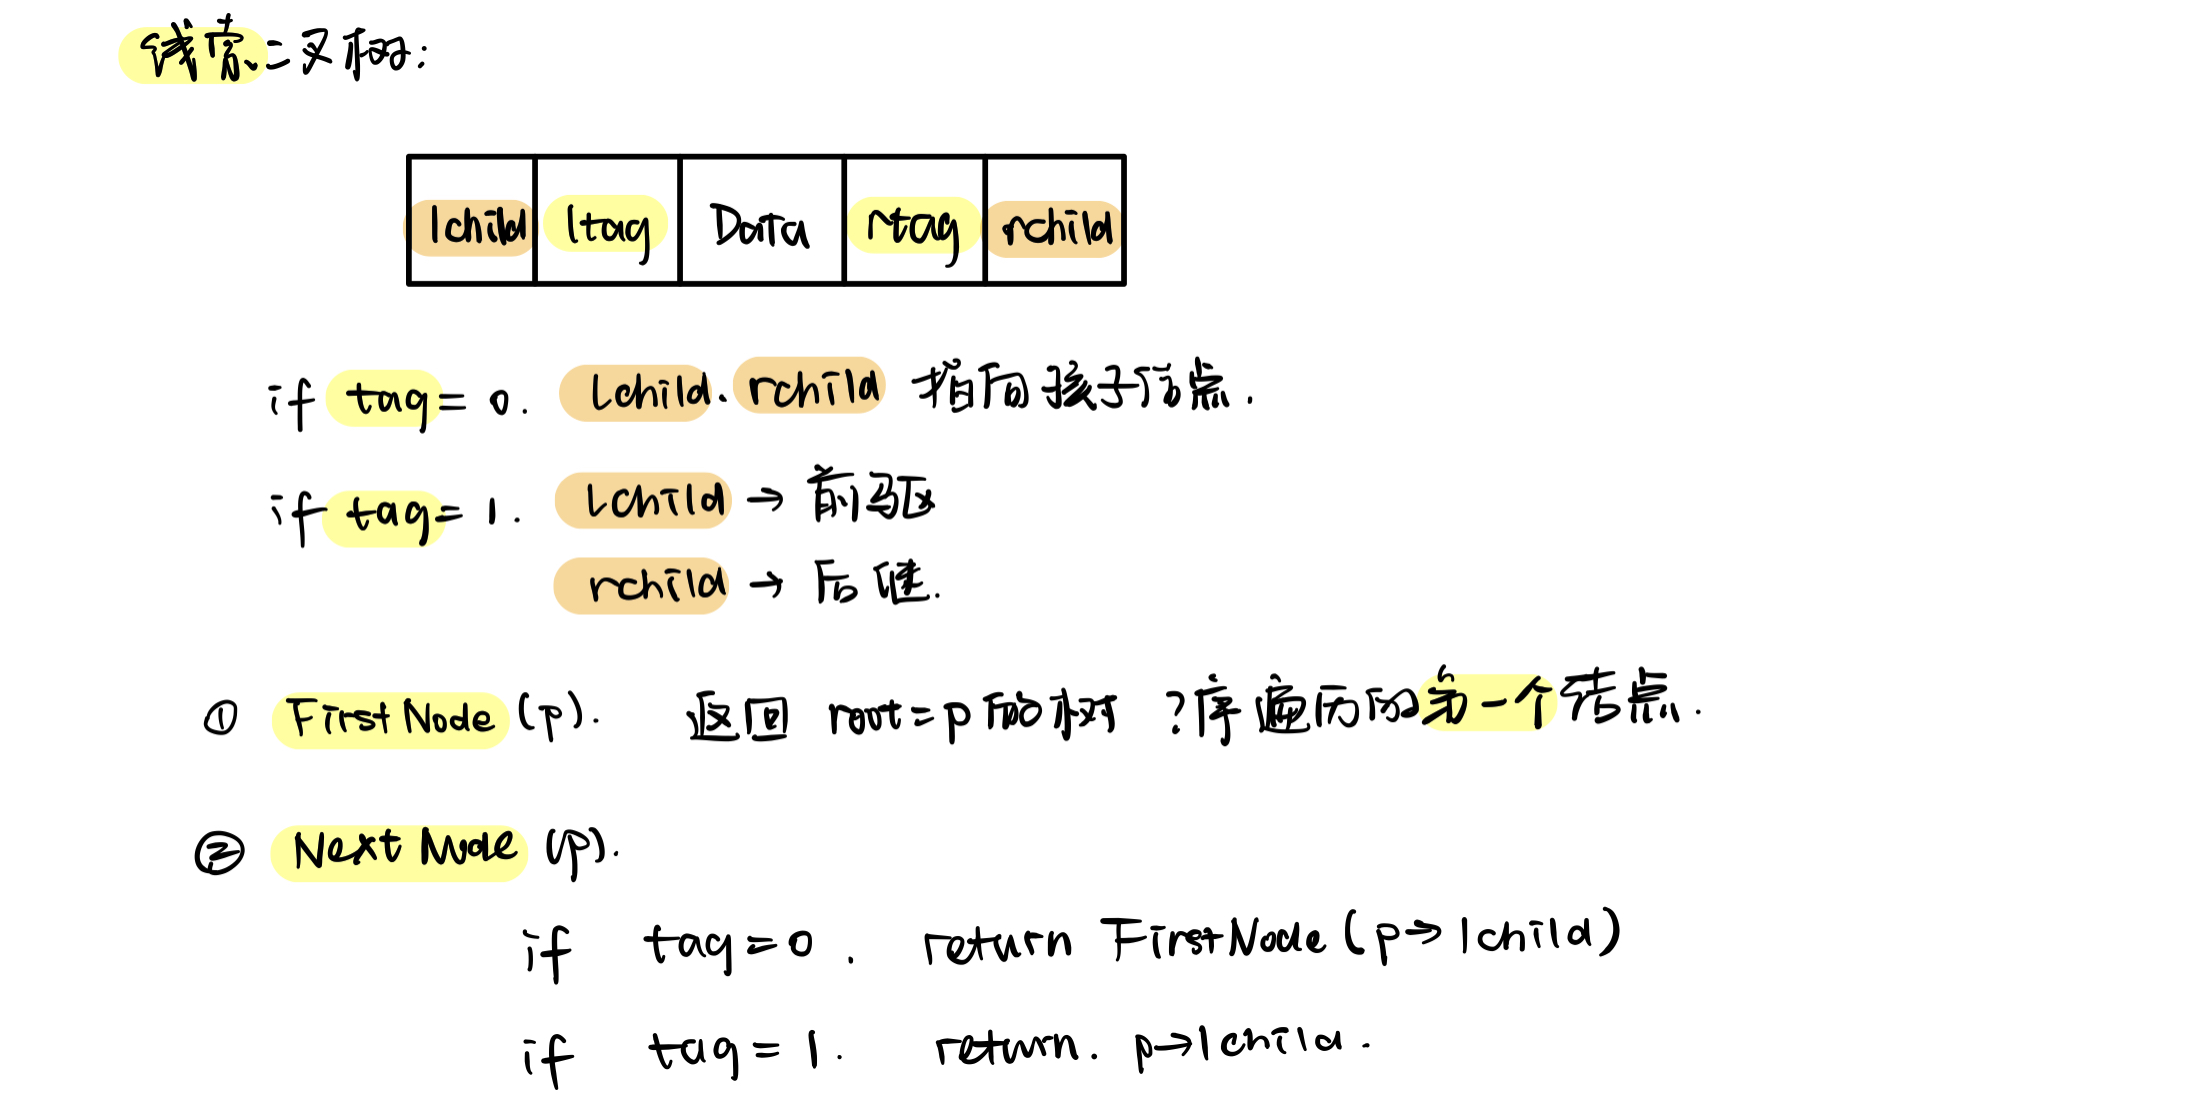 线索二叉树:
lchild ltag Data rtag rchild
if tag = 0. lchild. rchild 指向孩子结点.
if tag = 1. lchild → 前驱
rchild → 后继.
① FirstNode (p). 返回 root = p 的树 ?序遍历的第一个结点.
② Next Node (p).
if tag = 0. return FirstNode (p → lchild)
if tag = 1. return. p→lchild.